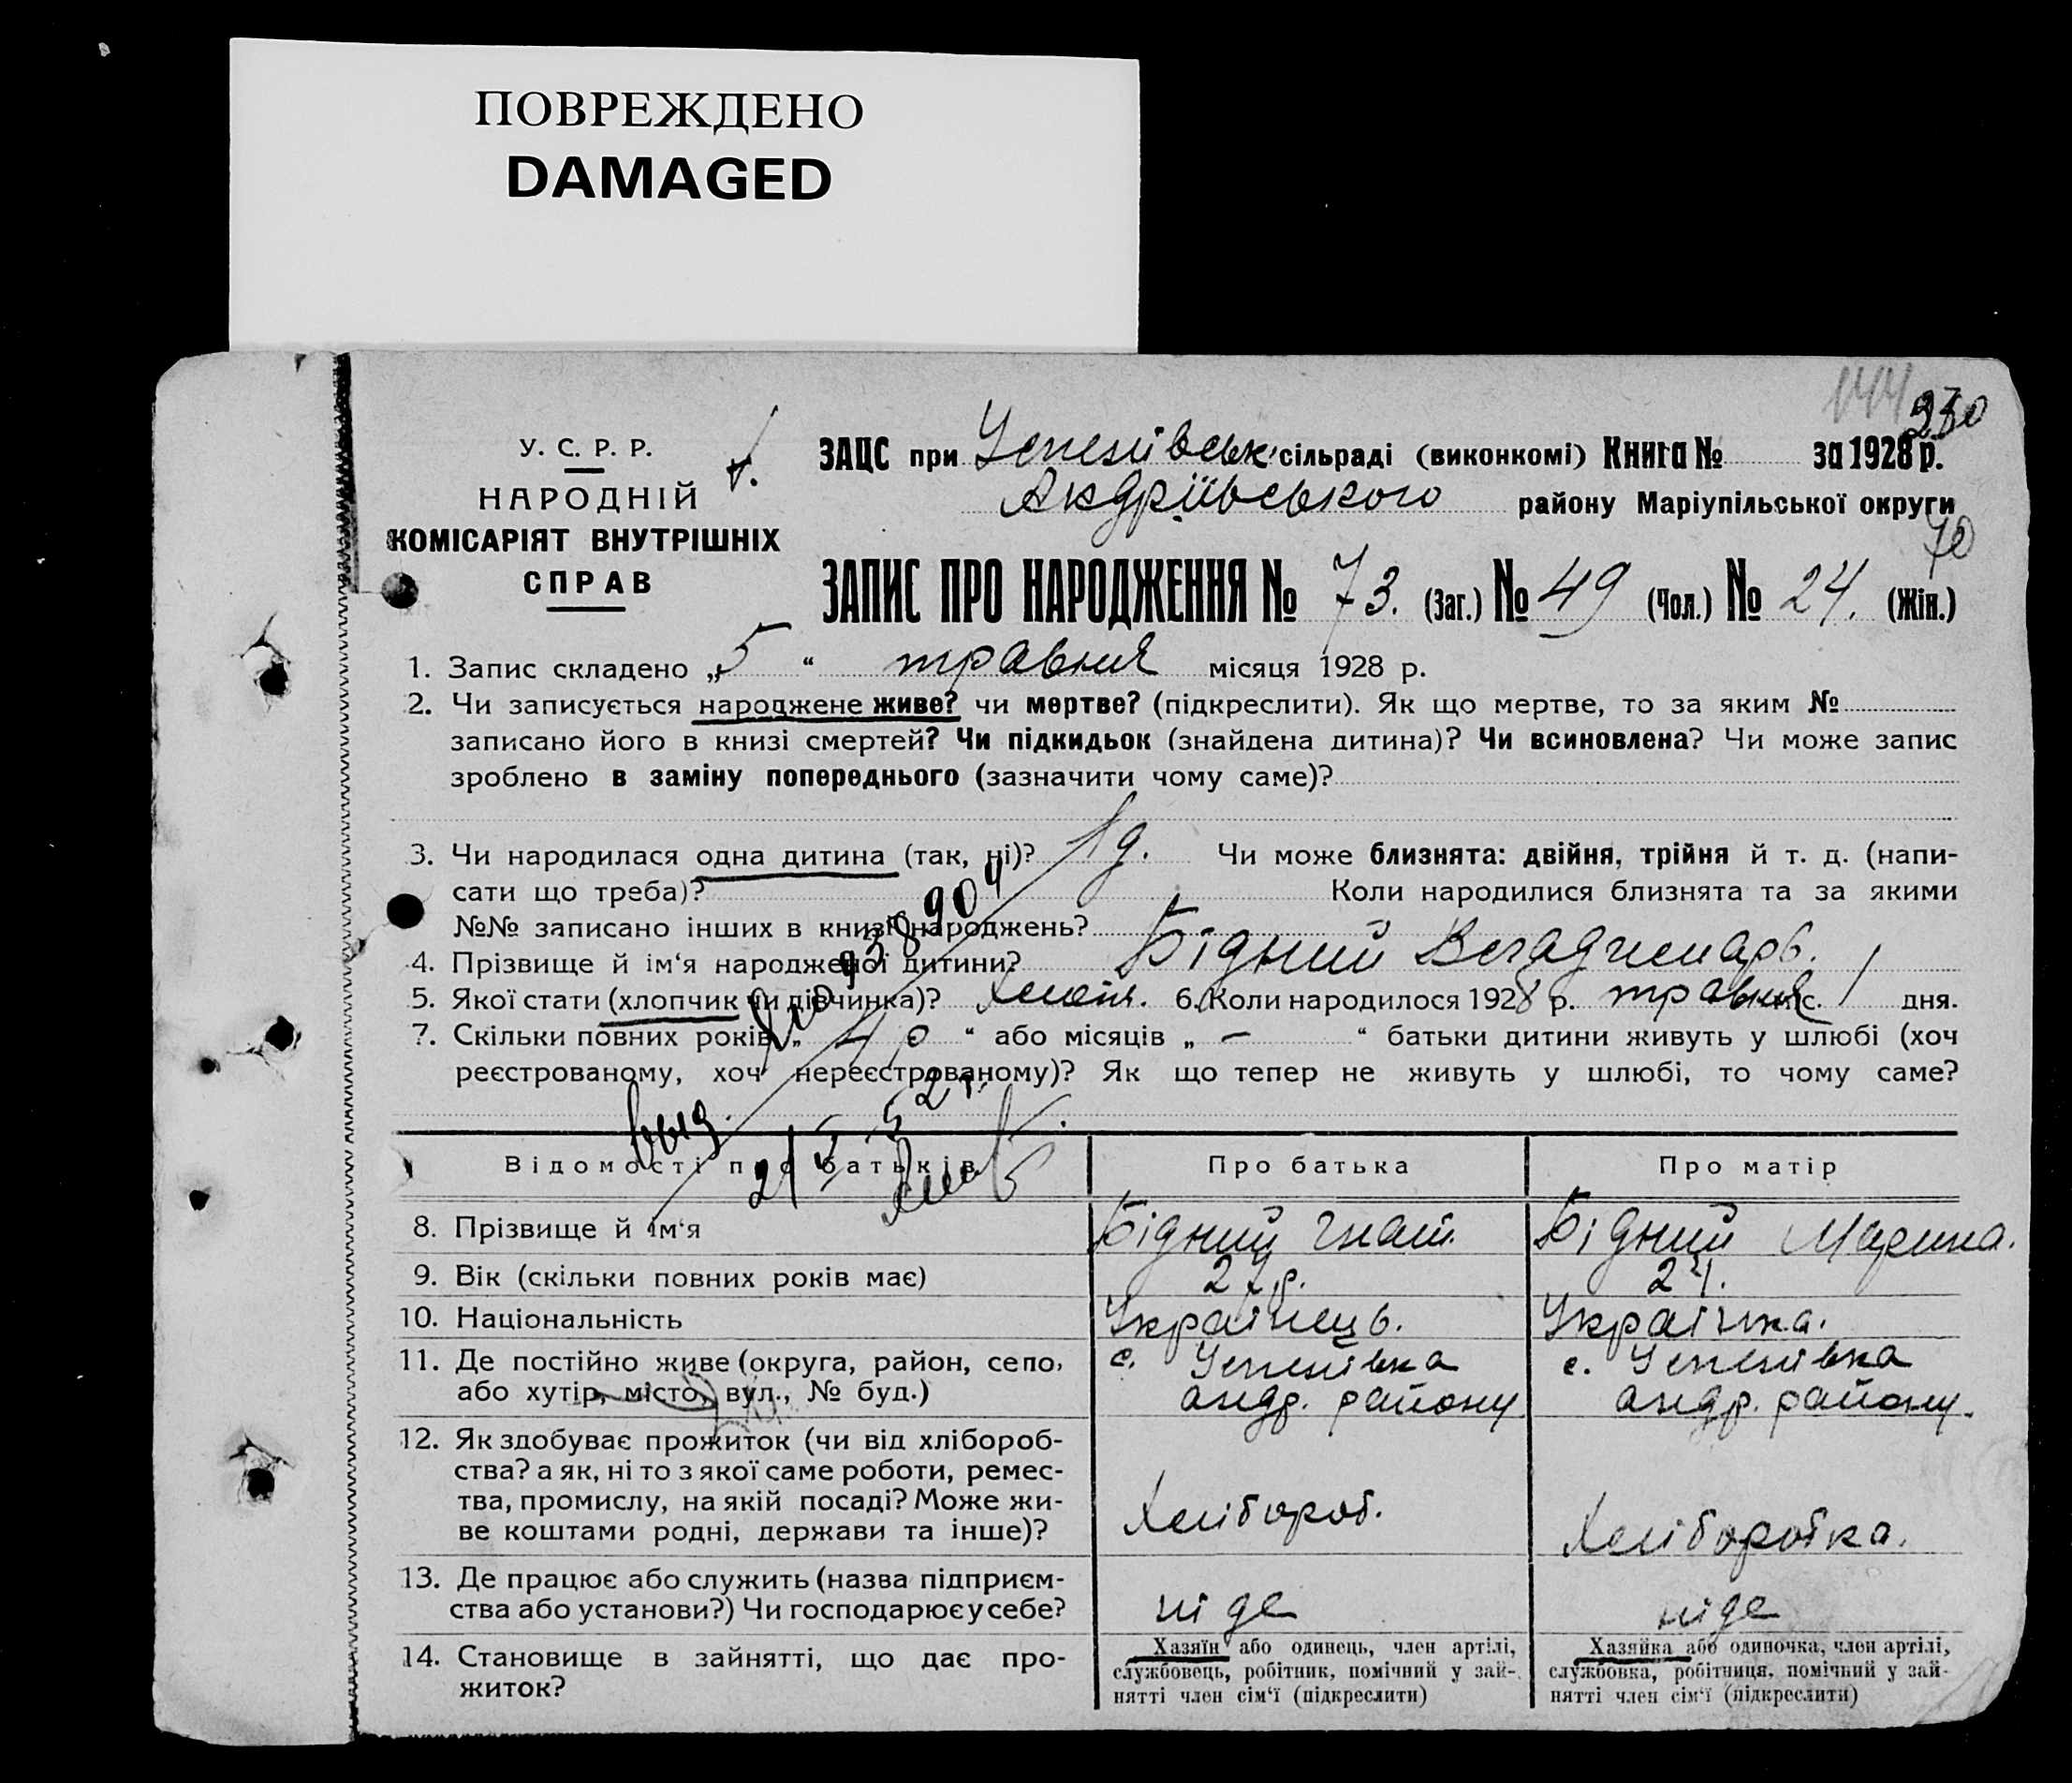 ПОВРЕЖДЕНО
DAMAGED
144
230
У. С. Р. Р.
НАРОДНІЙ
КОМІСАРІЯТ ВНУТРІШНІХ
СПРАВ
ЗАЦС при Успенівськ. сільраді (виконкомі) Книга № за 1928 р.
Андріївського району Маріупільської округи
70
ЗАПИС ПРО НАРОДЖЕННЯ № 73. (Заг.) № 49 (Чол.) № 24. (Жін.)
1. Запис складено „ 5 “ травня місяця 1928 р.
2. Чи записується народжене живе? чи мертве? (підкреслити). Як що мертве, то за яким №
записано його в книзі смертей? Чи підкидьок (знайдена дитина)? Чи всиновлена? Чи може запис
зроблено в заміну попереднього (зазначити чому саме)?
3. Чи народилася одна дитина (так, ні)? 1 д. Чи може близнята: двійня, трійня й т. д. (напи-
сати що треба)? Коли народилися близнята та за якими
№№ записано інших в книзі народжень?
4. Прізвище й ім‘я народженої дитини? Бідний Владимиарь.
5. Якої стати (хлопчик чи дівчинка)? Хлопч. 6. Коли народилося 1928 р. травня міс. 1 дня.
7. Скільки повних років „ 4 р “ або місяців „ — “ батьки дитини живуть у шлюбі (хоч
реєстрованому, хоч нереєстрованому)? Як що тепер не живуть у шлюбі, то чому саме?
выд.
938904
21/V-52 г.
Відомості про батьків Про батька Про матір
8. Прізвище й ім‘я Бідний Гнат. Бідний Марина.
9. Вік (скільки повних років має) 27 р. 24.
10. Національність Українець. Українка.
11. Де постійно живе (округа, район, село, с. Успенівка с. Успенівка
або хутір, місто, вул., № буд.) андр. району андр. району.
12. Як здобуває прожиток (чи від хлібороб-
ства? а як, ні то з якої саме роботи, ремес-
тва, промислу, на якій посаді? Може жи- Хлібороб.
ве коштами родні, держави та інше)? Хліборобка.
13. Де працює або служить (назва підприєм-
ства або установи?) Чи господарює у себе? ні де ніде
14. Становище в зайнятті, що дає про-
житок?
Хазяїн або одинець, член артілі,
службовець, робітник, помічний у зай-
нятті член сім‘ї (підкреслити)
Хазяйка або одиночка, член артілі,
службовка, робітниця, помічний у зай-
нятті член сім‘ї (підкреслити)